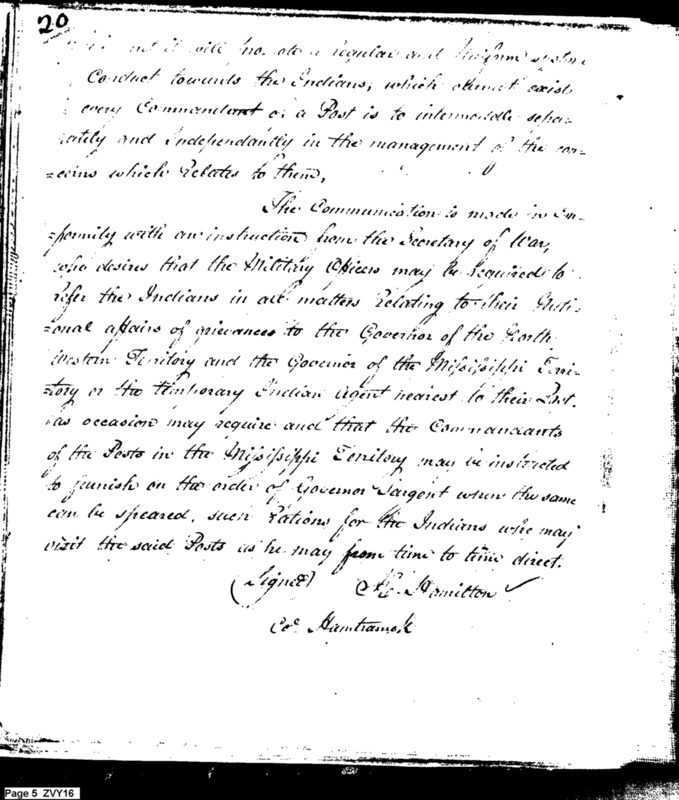 20
it will promote a regular and Uniform system
Conduct towards the Indians, which cannot exist
every Commandant of a Post is to intermeddle sepa-
-rately and Independantly in the management of the con-
=cerns which Relates to them,
The Communication is made in Con-
=formity with an instruction from the Secretary of War,
who desires that the Military Officers may be required to
refer the Indians in all matters Relating to their Nati-
=onal affairs of grievances to the Governor of the North
Western Territory and the Governor of the Missisippi Terri-
=tory or the temporary Indian Agent nearest to their Post.
as occasion may require and that the Commandants
of the Posts in the Missisippi Territory may be instructed
to furnish on the order of Governor Sargent when the same
can be speared, such Rations for the Indians who may
visit the said Posts as he may from time to time direct.
(Signed) Hamilton
Col. Hamtramck
Page 5 ZVY16